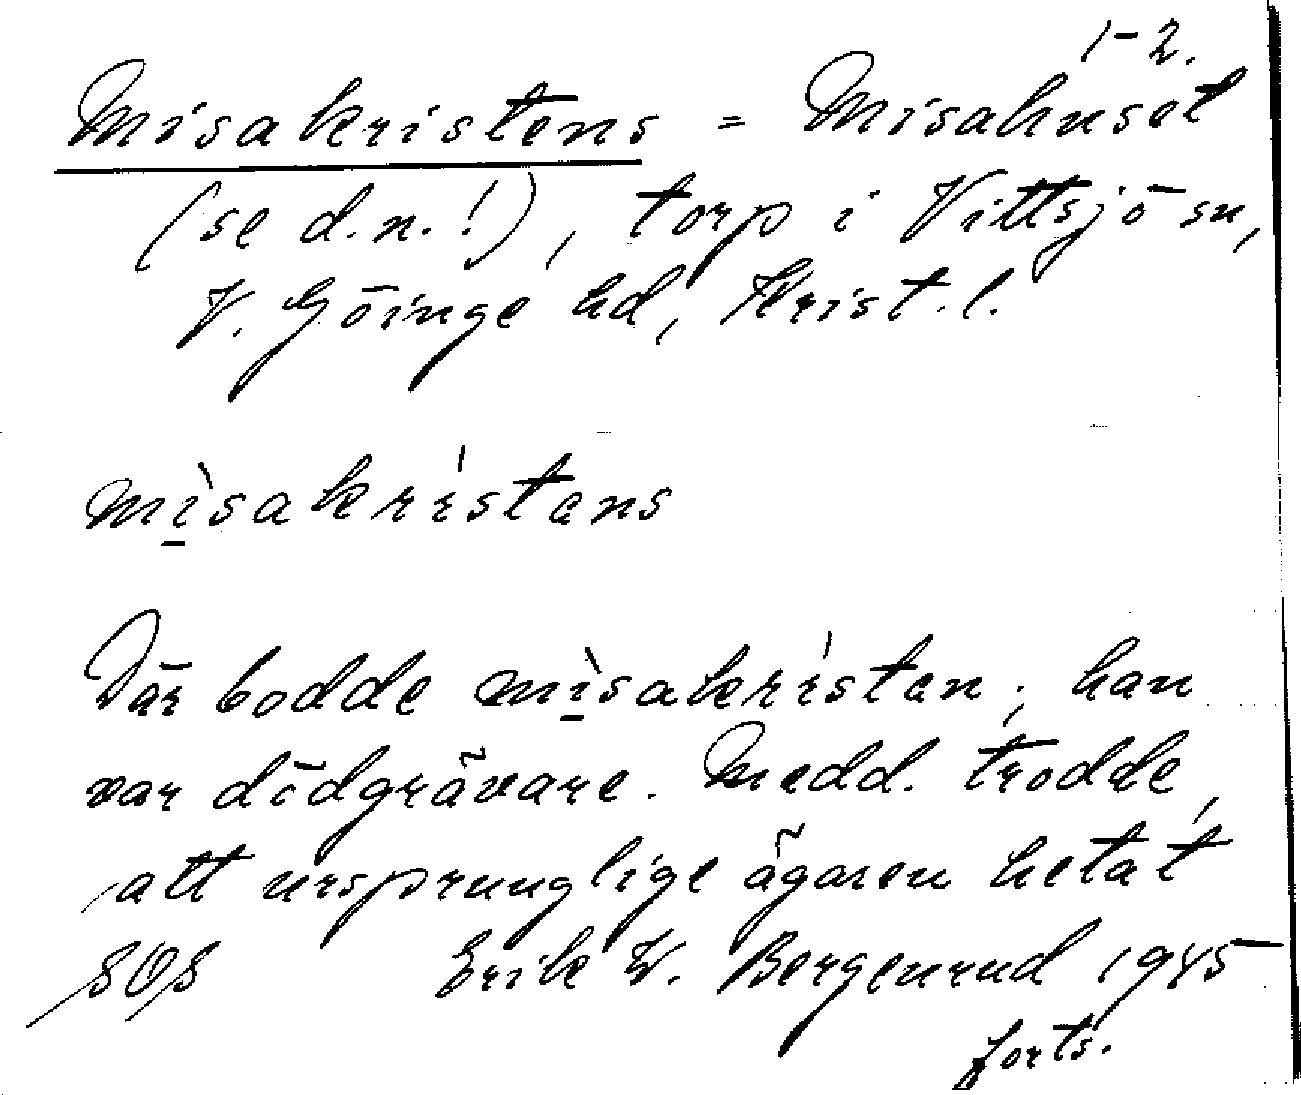 1-2.
Misakristens = Misahuset
(se d.n.!), torp i Vittsjö sn,
V. Göinge hd, Krist. l.
mì̱sakrístens
Där bodde mì̱sakrísten, han
var dödgrävare. Medd. trodde,
att ursprunglige ägaren hetat
SOS Erik W. Bergenrud 1945
forts.